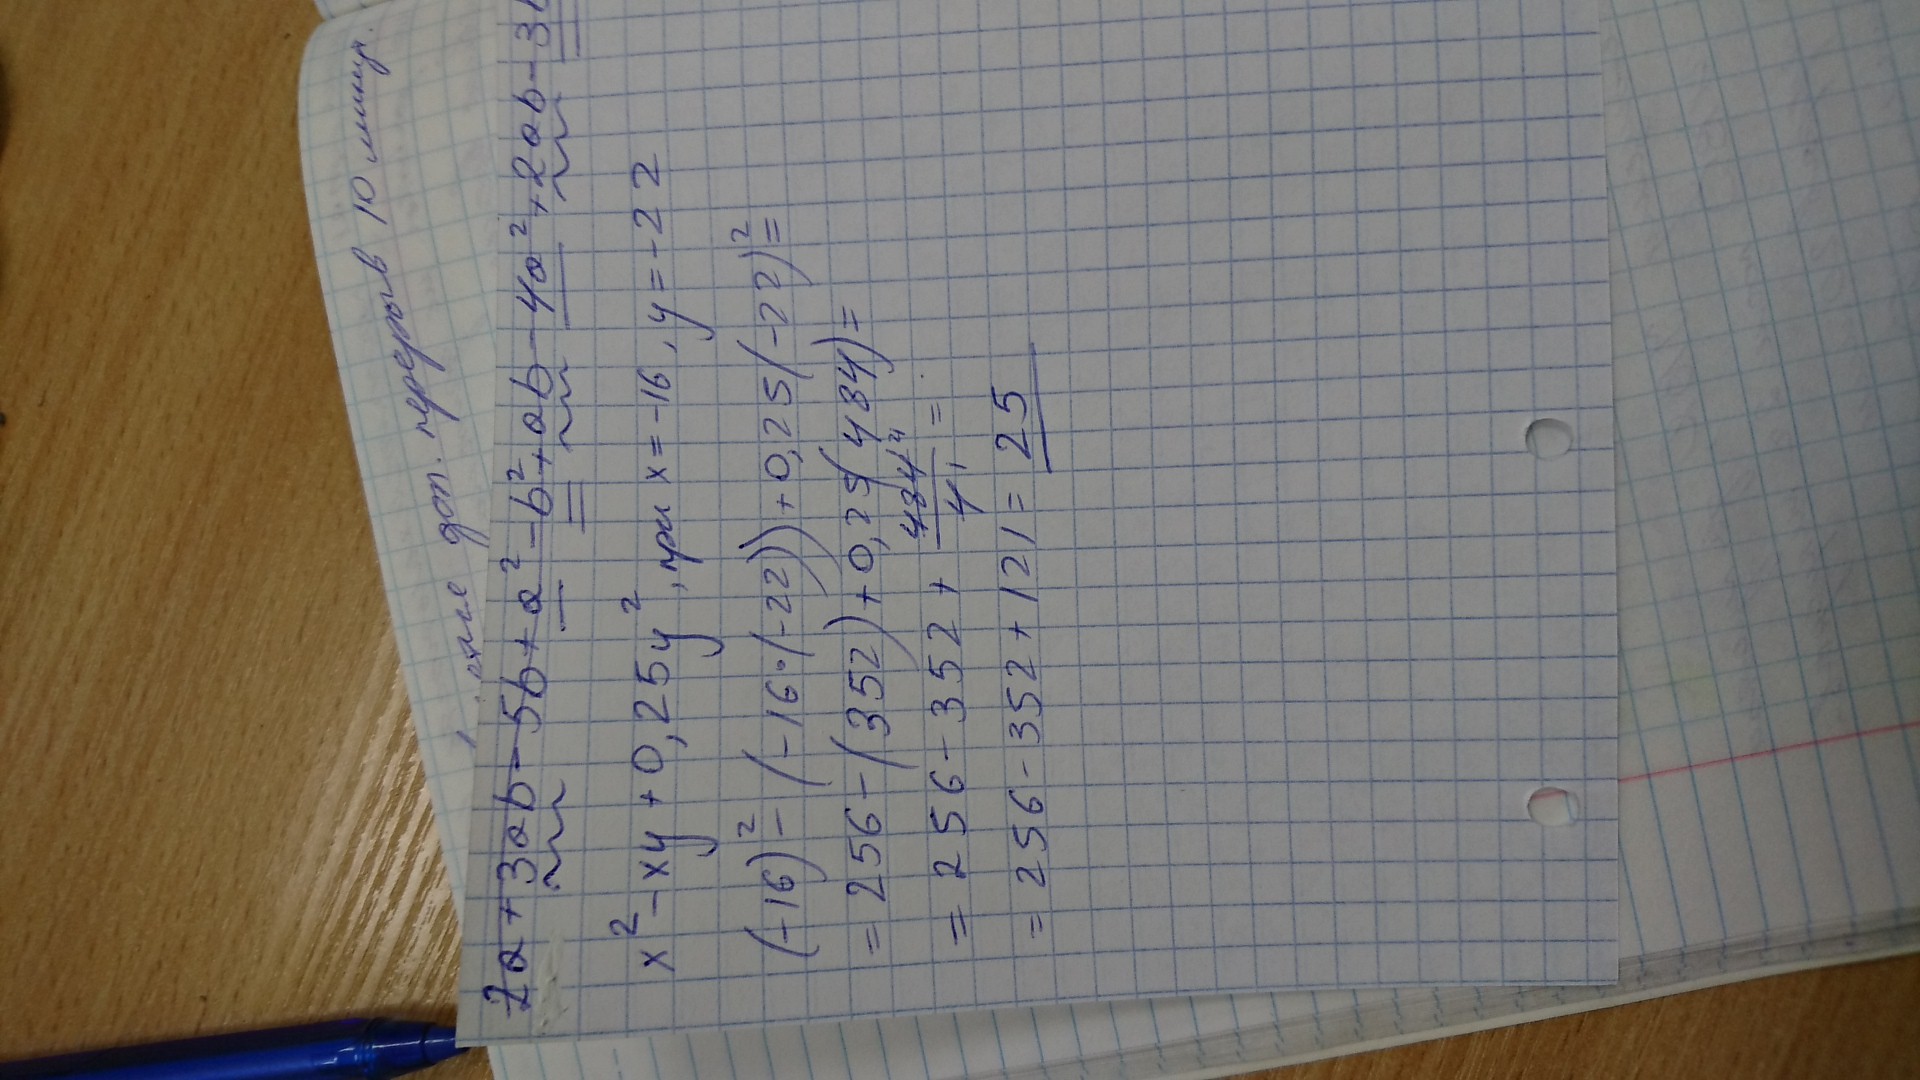 доп. перерыв 10 минут.
2a + 3ab - 5b + a² - b² + ab - 4a² + 2ab - 3
x² - xy + 0,25y², при x = -16, y = -22
(-16)² - (-16·(-22)) + 0,25(-22)² =
= 256 - (352) + 0,25(484) =
= 256 - 352 + 484/4 =
= 256 - 352 + 121 = 25